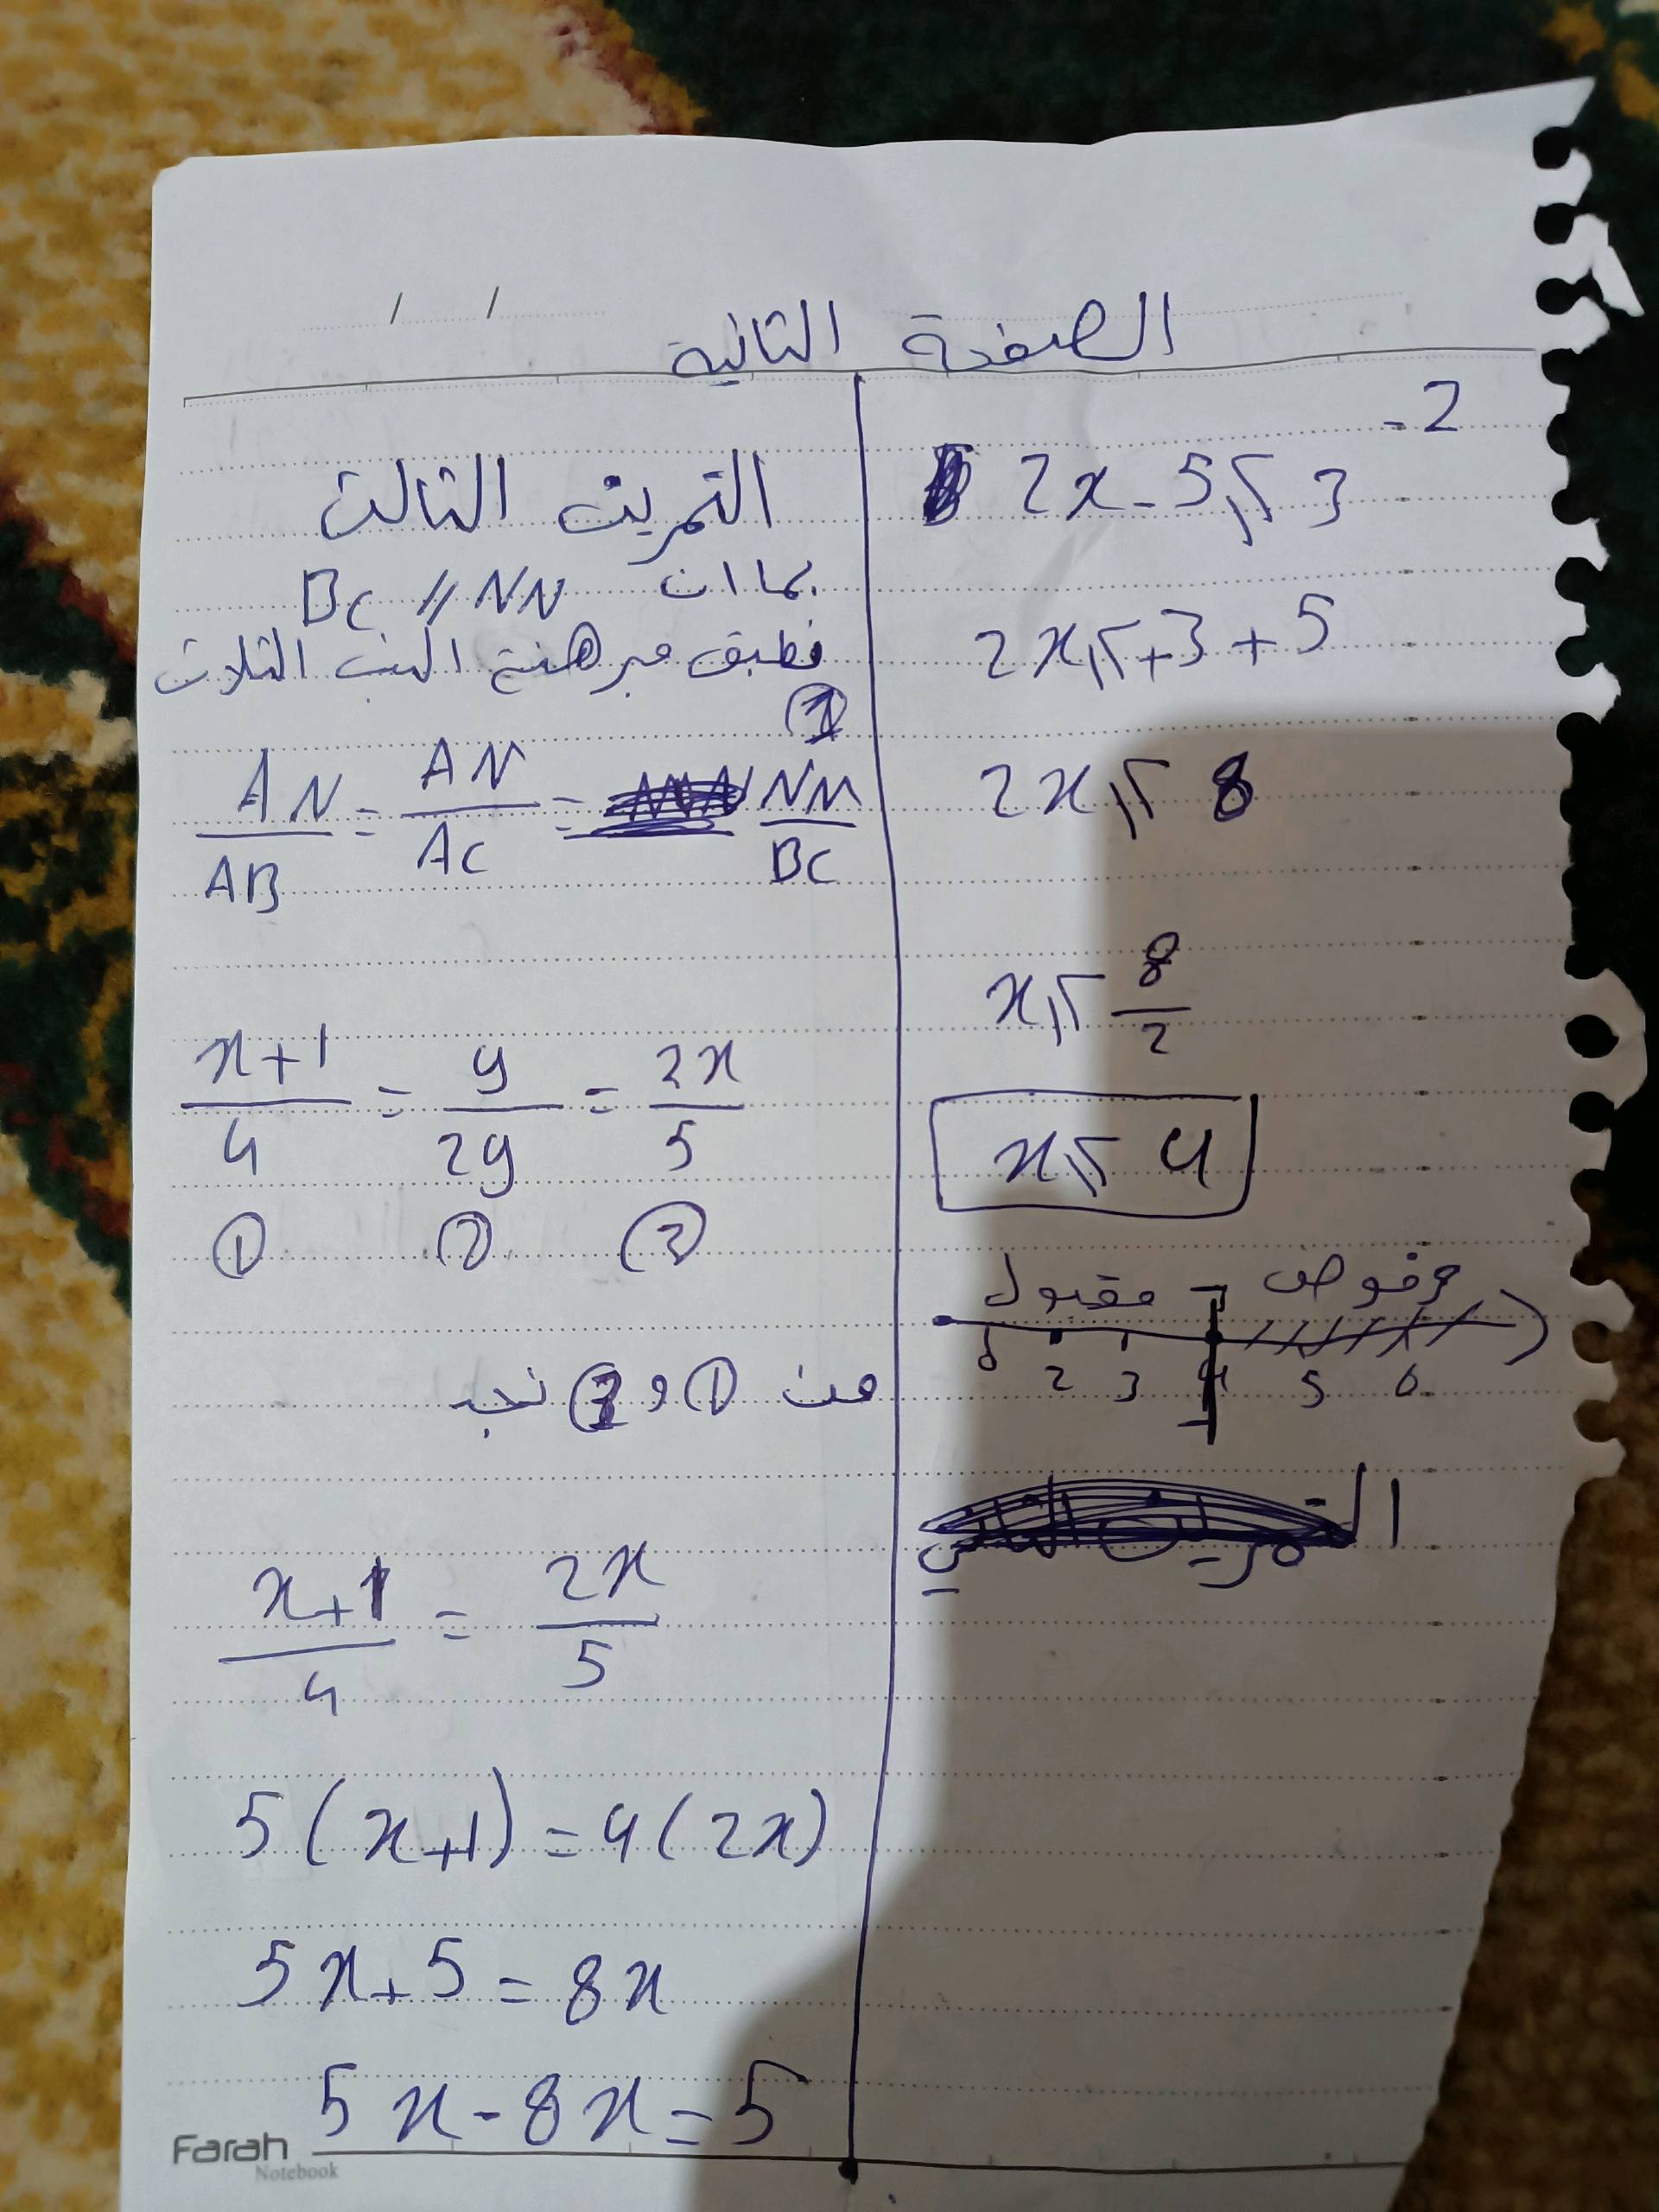 الصفحة الثانية
2 -
2x - 5 ≤ 3
2x ≤ +3 + 5
2x ≤ 8
x ≤ 8/2
x ≤ 4
مقبول مرفوض
2 3 4 5 6
التمرين الثالث
بما ان BC // NN
نطبق مبرهنة النسب الثلاث
①
AN/AB = AN/AC = NM/BC
x+1/4 = y/2y = 2x/5
① ② ③
من ① و نجد
x+1/4 = 2x/5
5(x+1) = 4(2x)
5x+5 = 8x
5x - 8x = 5
Farah
Notebook